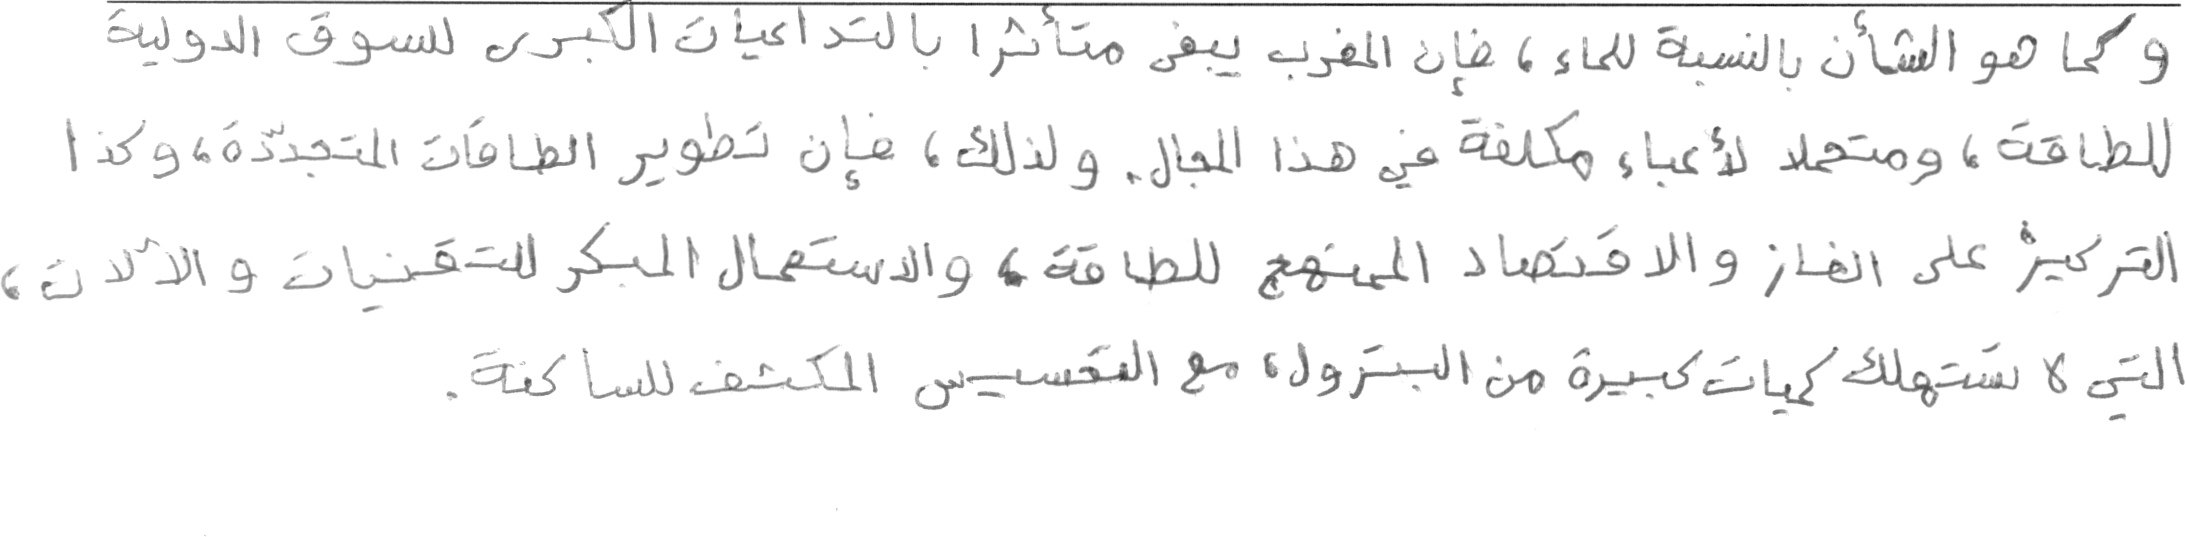 وكما هو الشأن بالنسبة للماء، فإن المغرب يبقى متأثرا بالتداعيات الكبرى للسوق الدولية
للطاقة، ومتحملا لأعباء مكلفة في هذا المجال. ولذلك، فإن تطوير الطاقات المتجددّة، وكذا
التركيز على الغاز والاقتصاد الممنهج للطاقة، والاستعمال المبكر للتقنيات والآلات،
التي لا تستهلك كميات كبيرة من البترول، مع التحسيس المكثف للساكنة.